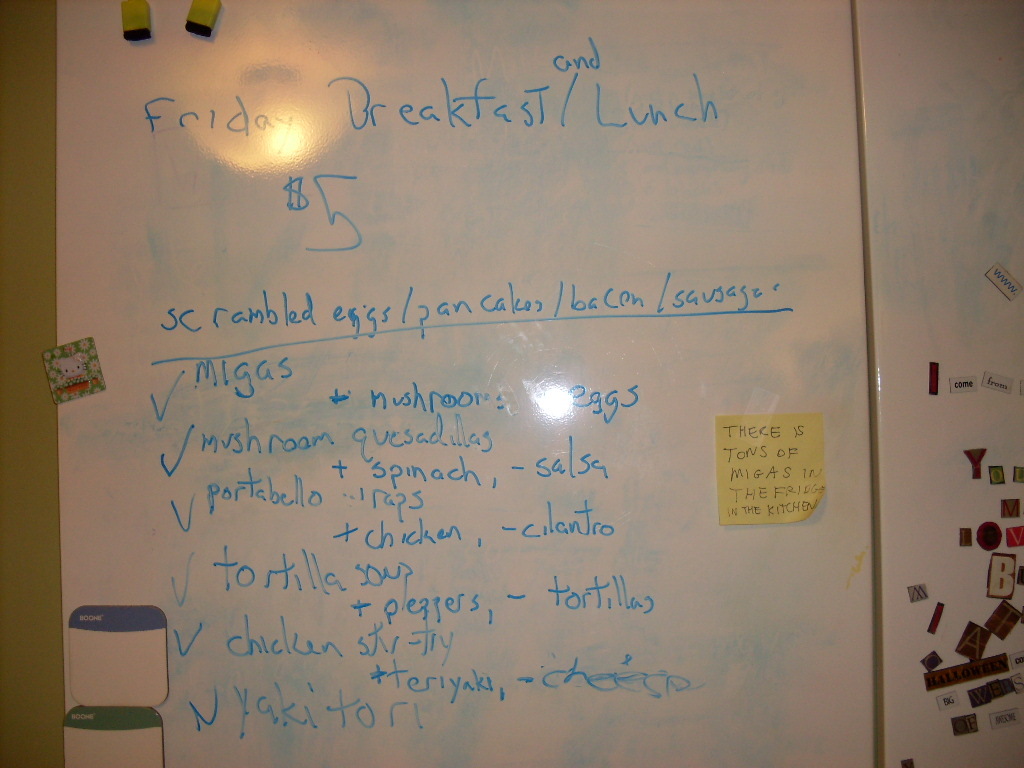 and
Friday Breakfast/Lunch
$5
scrambled eggs/pancakes/bacon/sausage
✓ migas
+ mushrooms eggs
✓ mushroom quesadillas
+ spinach, - salsa
✓ portabello wraps
+ chicken, - cilantro
✓ tortilla soup
+ peppers, - tortillas
✓ chicken stir-fry
+ teriyaki, -
✓ Yakitori
THERE IS
TONS OF
MIGAS IN
THE FRIDGE
IN THE KITCHEN
BOONE
BOONE
www
I come from
HALLOWEEN
BIG
OF